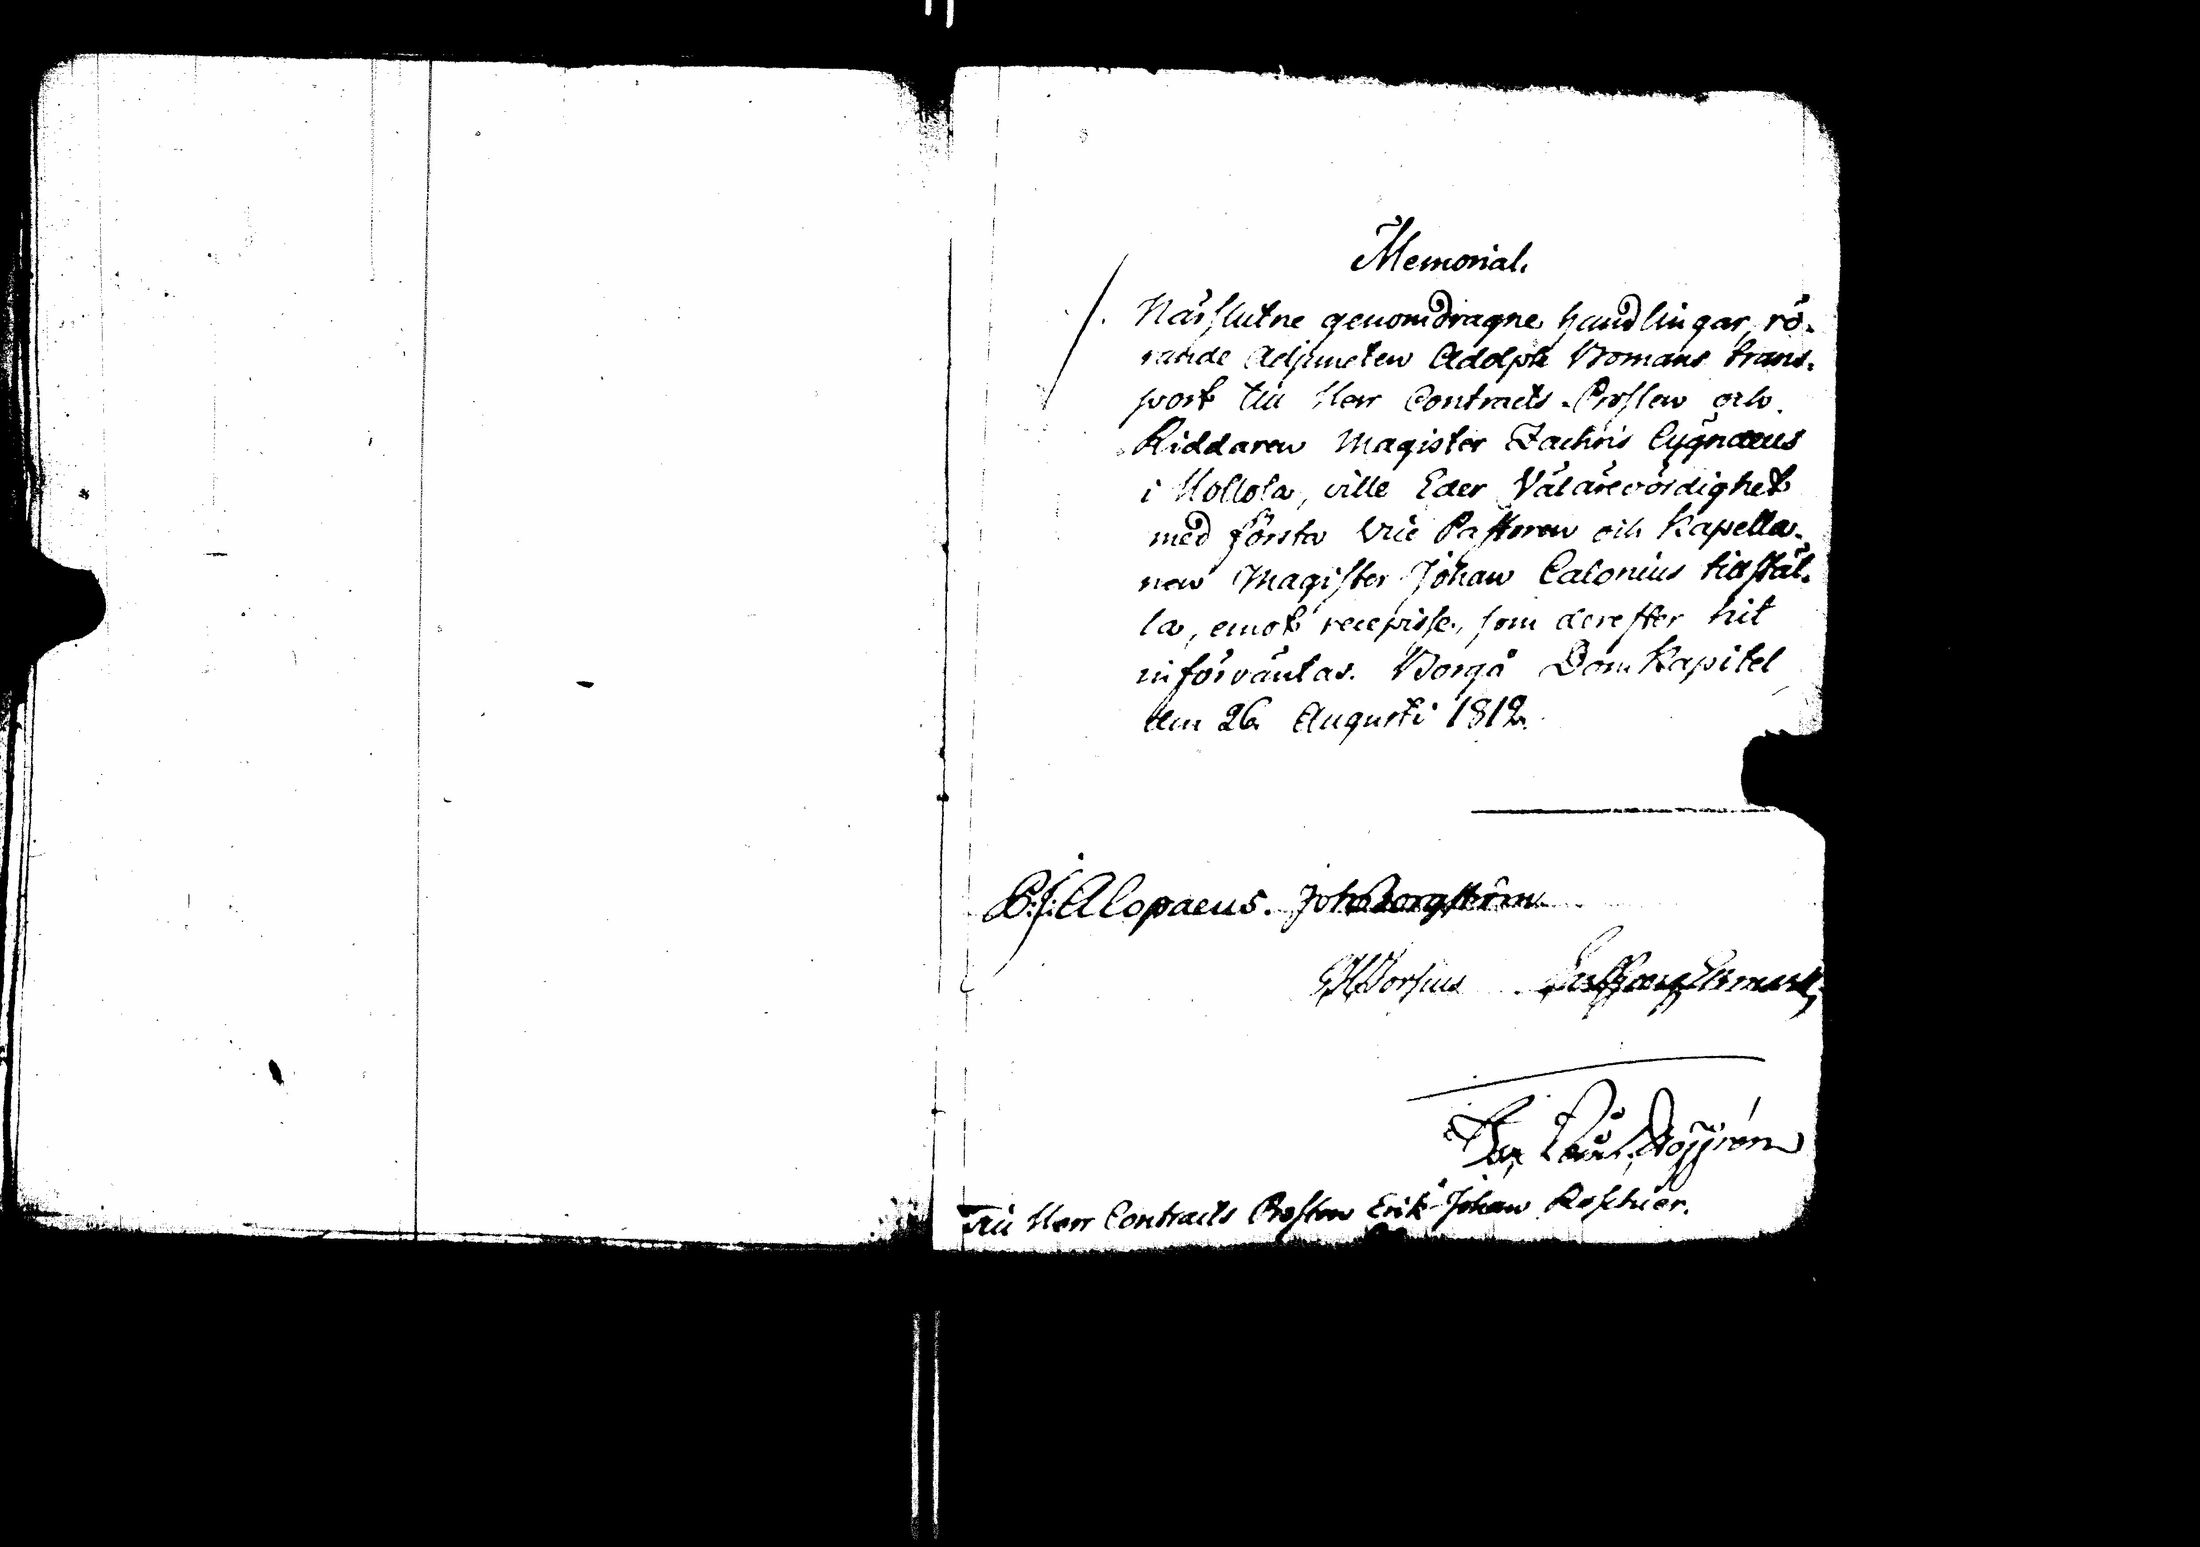 Memorial.
Närslutne genomdragne handlingar, rö-
rande Adjuncten Adolph Bomans trans-
port till Herr Contracts-Prosten och
Riddaren Magister Zachris Cygnæus
i Hollola, ville Eder Välärevördighet
med första Vice Pastoren och Kapella-
nen Magister Johan Calonius tillstäl-
la, emot recepisse, som derefter hit
införväntas. Borgå Dom Kapitel
den 26 Augusti 1812.
P: J: Alopaeus. Joh Borgström
Till Herr Contracts Prosten Erik Johan Roschier.